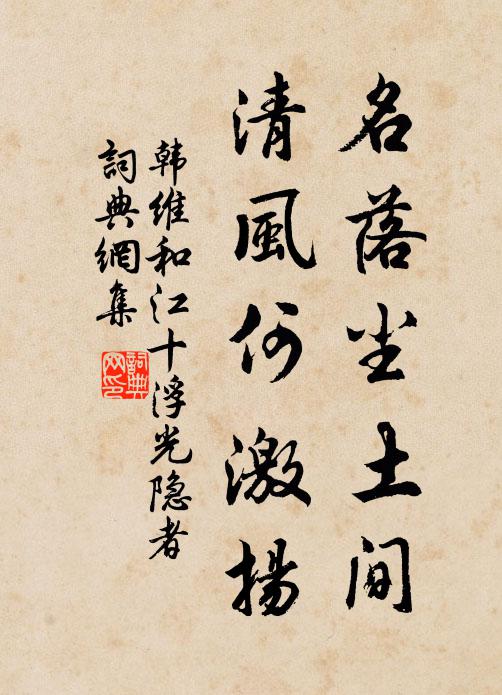 名落尘土間
清風何激揚
韩維和江十浮光隐者
詞典網集
詞典
网印